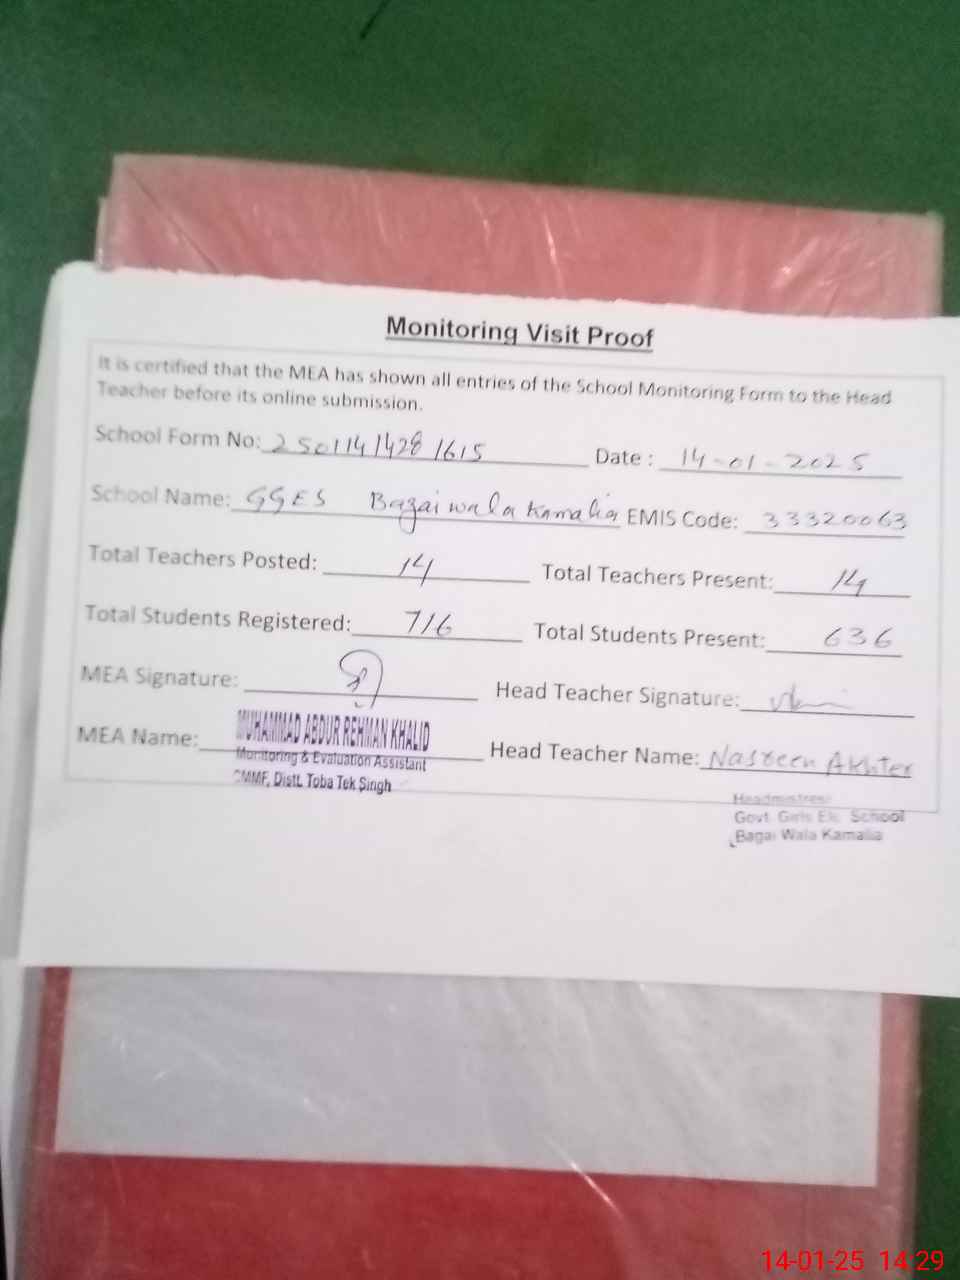 Monitoring Visit Proof
It is certified that the MEA has shown all entries of the School Monitoring Form to the Head
Teacher before its online submission.
School Form No: 2501141428 1615 Date : 14-01-2025
School Name: GGES Bagaiwala Kamalia EMIS Code: 33320063
Total Teachers Posted: 14 Total Teachers Present: 14
Total Students Registered: 716 Total Students Present: 636
MEA Signature: Head Teacher Signature:
MEA Name: MUHAMMAD ABDUR REHMAN KHALID Head Teacher Name: Nasreen Akhter
Monitoring & Evaluation Assistant
CMMF, Distt. Toba Tek Singh
Headmistress
Govt. Girls Ele. School
Bagai Wala Kamalia
14-01-25 14:29